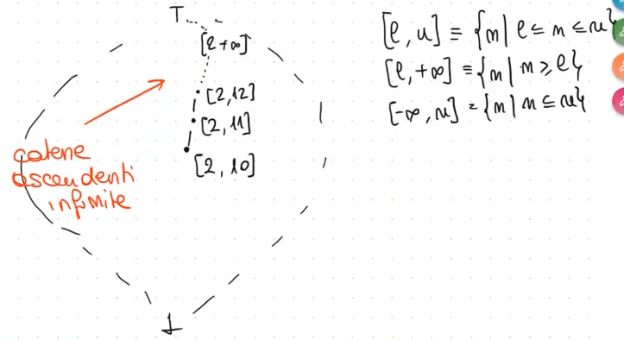 T...
[2+∞]
[2,12]
[2,11]
[2,10]
catene
ascendenti
infinite
⊥
[l,u] ≡ {n | l ≤ n ≤ u}
[l,+∞] ≡ {n | n ≥ l}
[-∞,u] = {n | n ≤ u}